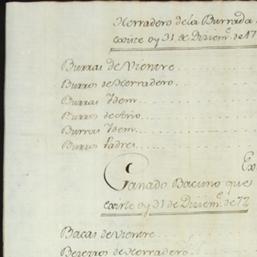 Herradero de la Burrada
existe oy 31 de Diziemᵉ. de 17
Burras de Vientre
Burros de Herradero.
Burras Ydem
Burros de Año
Burras Ydem
Burros Padres
Ex
Ganado Bacuno que
existe oy 31 de Diziemᵉ. de 72
Bacas de Vientre
Bezerros de Herradero